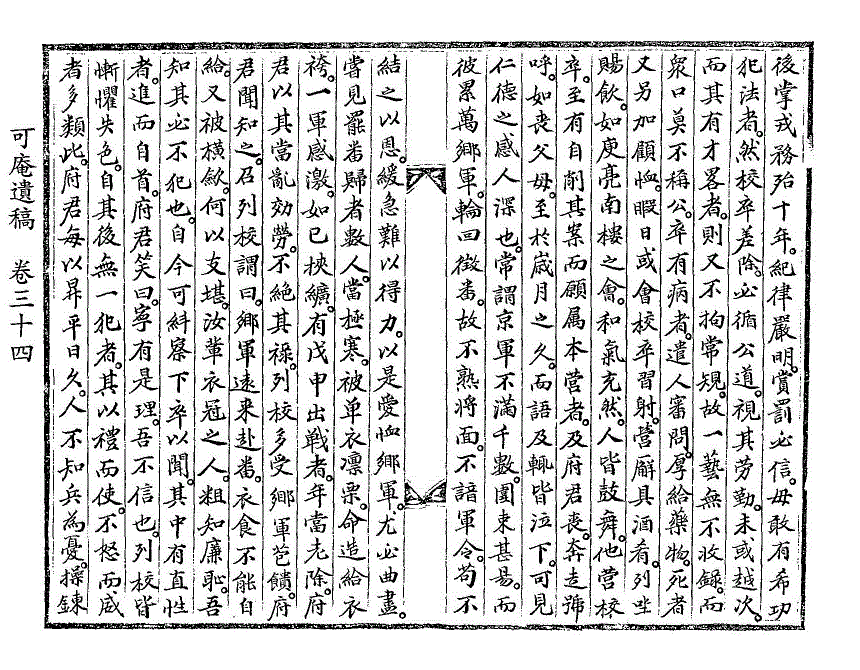 後掌戎務殆十年。紀律嚴明。賞罰必信。毋敢有希功
犯法者。然校卒差除。必循公道。視其劳勤。未或越次。
而其有才畧者。則又不拘常規。故一藝無不收錄。而
衆口莫不稱公。卒有病者。遣人審問。厚給藥物。死者
又另加顧恤。暇日或會校卒習射。營廨具酒肴。列坐
賜飮。如庾亮南樓之會。和氣充然。人皆鼓舞。他營校
卒。至有自削其案而願属本營者。及府君喪。奔走號
呼。如喪父母。至於歲月之久。而語及輒皆泣下。可見
仁德之感人深也。常謂京軍不滿千數。圍束甚易。而
彼累萬鄕軍。輪回徵番。故不熟將面。不諳軍令。苟不
結之以恩。緩急難以得力。以是愛恤鄕軍。尤必曲盡。
嘗見罷番歸者數人。當極寒。被单衣凛栗。命造給衣
袴。一軍感激。如已挾纊。有戊申出戰者。年當老除。府
君以其當亂効勞。不絶其祿。列校多受鄕軍苞饋。府
君聞知之。召列校謂曰。鄕軍遠来赴番。衣食不能自
給。又被橫歛。何以支堪。汝軰衣冠之人。粗知廉恥。吾
知其必不犯也。自今可糾察下卒以聞。其中有直性
者。進而自首。府君笑曰。寧有是理。吾不信也。列校皆
慚懼失色。自其後無一犯者。其以禮而使。不怒而威
者多類此。府君每以昇平日久。人不知兵為憂。操鍊
可庵遺稿 卷三十四